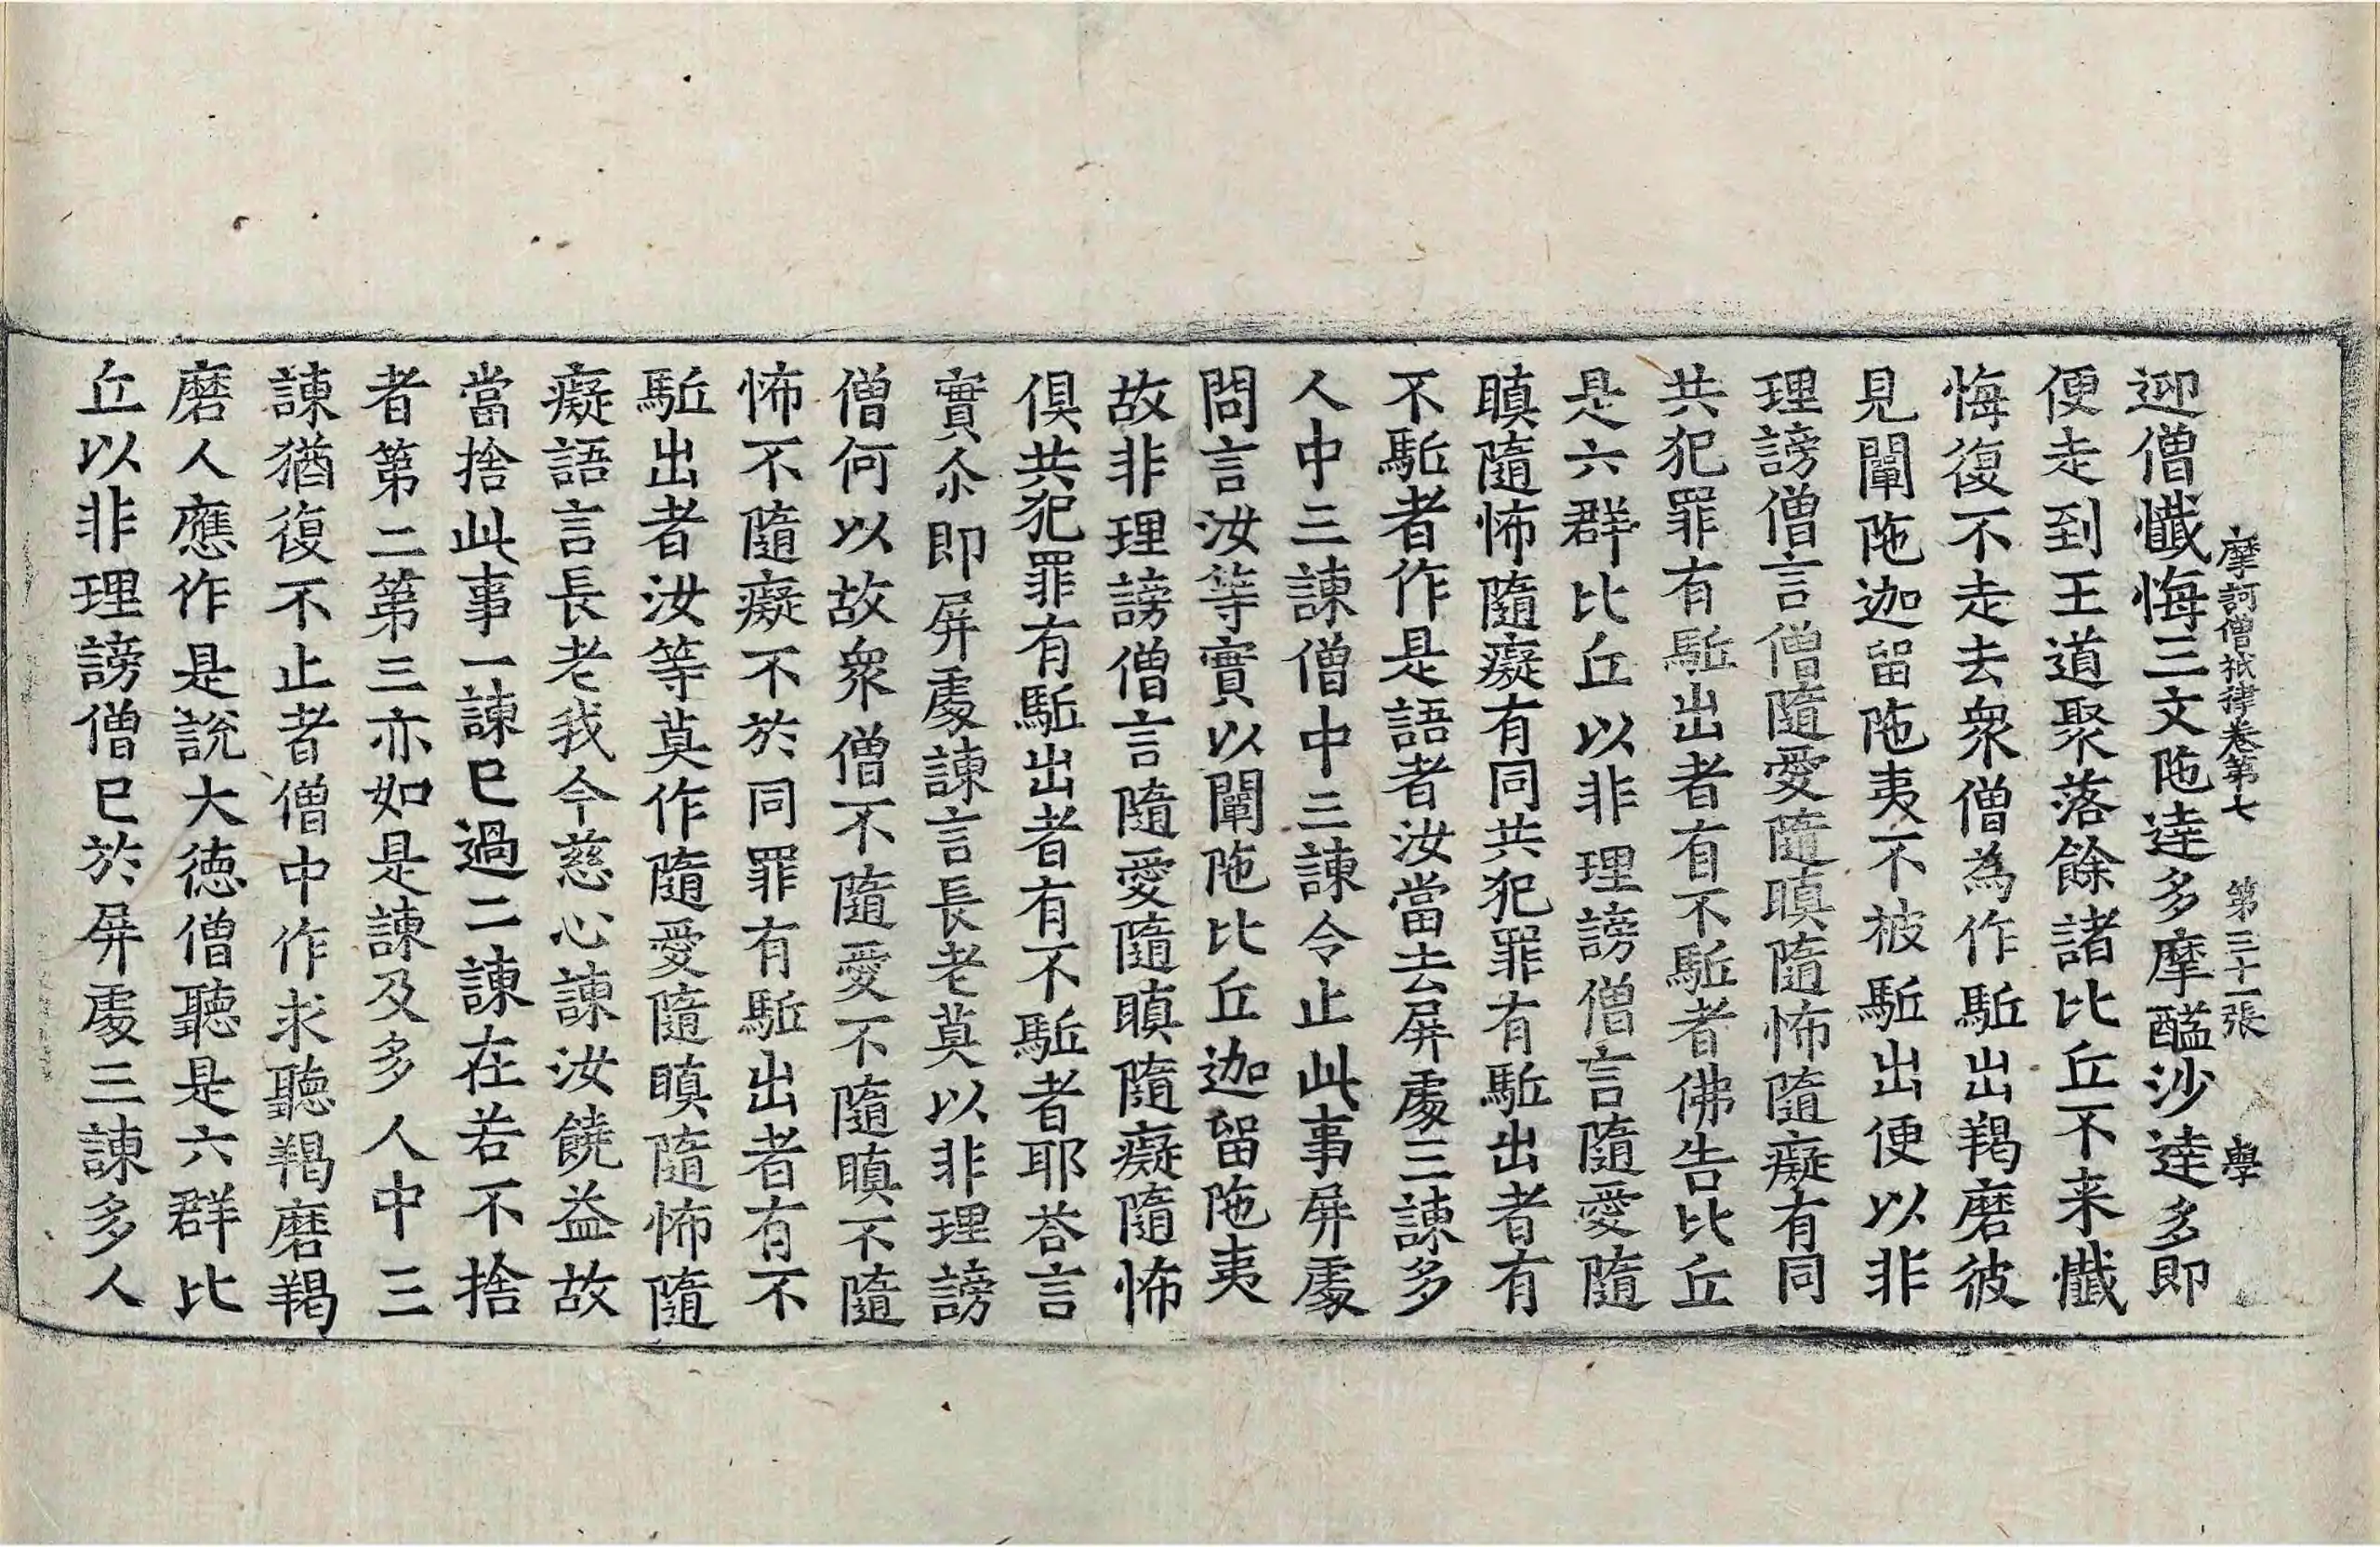 摩訶僧祇律卷第七 第三十一張 學
迎僧懺悔三文陁達多摩醯沙達多即
便走到王道聚落餘諸比丘不来懺
悔復不走去衆僧為作駈出羯磨彼
見闡陁迦留陁夷不被駈出便以非
理謗僧言僧隨愛隨瞋隨怖隨癡有同
共犯罪有駈出者有不駈者佛告比丘
是六群比丘以非理謗僧言隨愛隨
瞋隨怖隨癡有同共犯罪有駈出者有
不駈者作是語者汝當去屏處三諫多
人中三諫僧中三諫令止此事屏處
問言汝等實以闡陁比丘迦留陁夷
故非理謗僧言隨愛隨瞋隨癡隨怖
俱共犯罪有駈出者有不駈者耶荅言
實尒即屏處諫言長老莫以非理謗
僧何以故衆僧不隨愛不隨瞋不隨
怖不隨癡不於同罪有駈出者有不
駈出者汝等莫作隨愛隨瞋隨怖隨
癡語言長老我今慈心諫汝饒益故
當捨此事一諫已過二諫在若不捨
者第二第三亦如是諫及多人中三
諫猶復不止者僧中作求聽羯磨羯
磨人應作是說大德僧聽是六群比
丘以非理謗僧已於屏處三諫多人